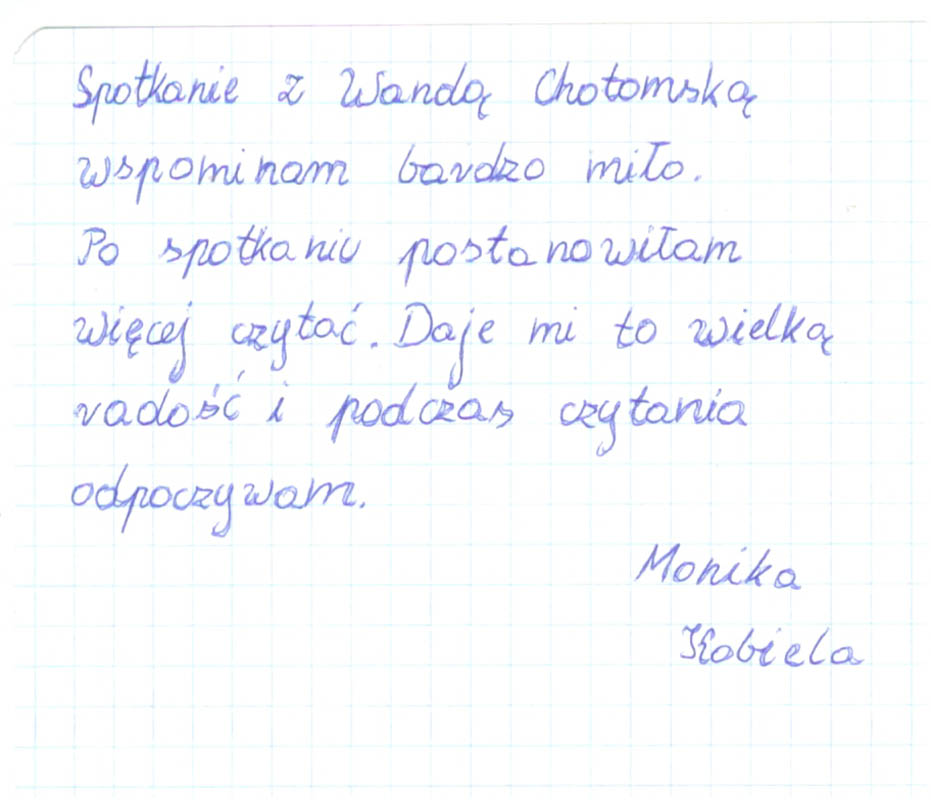 Spotkanie z Wandą Chotomską
wspominam bardzo miło.
Po spotkaniu postanowiłam
więcej czytać. Daje mi to wielką
radość i podczas czytania
odpoczywam.
Monika
Kobiela